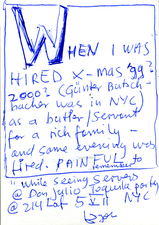 WHEN I WAS
HIRED X-MAS '99?
2000? (Günter Butsch-
bacher was in NYC)
as a butler/servant
for a rich family -
and same evening was
fired. PAINFUL to
remember
"while seeing servers
@ Don Julio Tequila party
@ 214 Laf 5 V 11 NYC